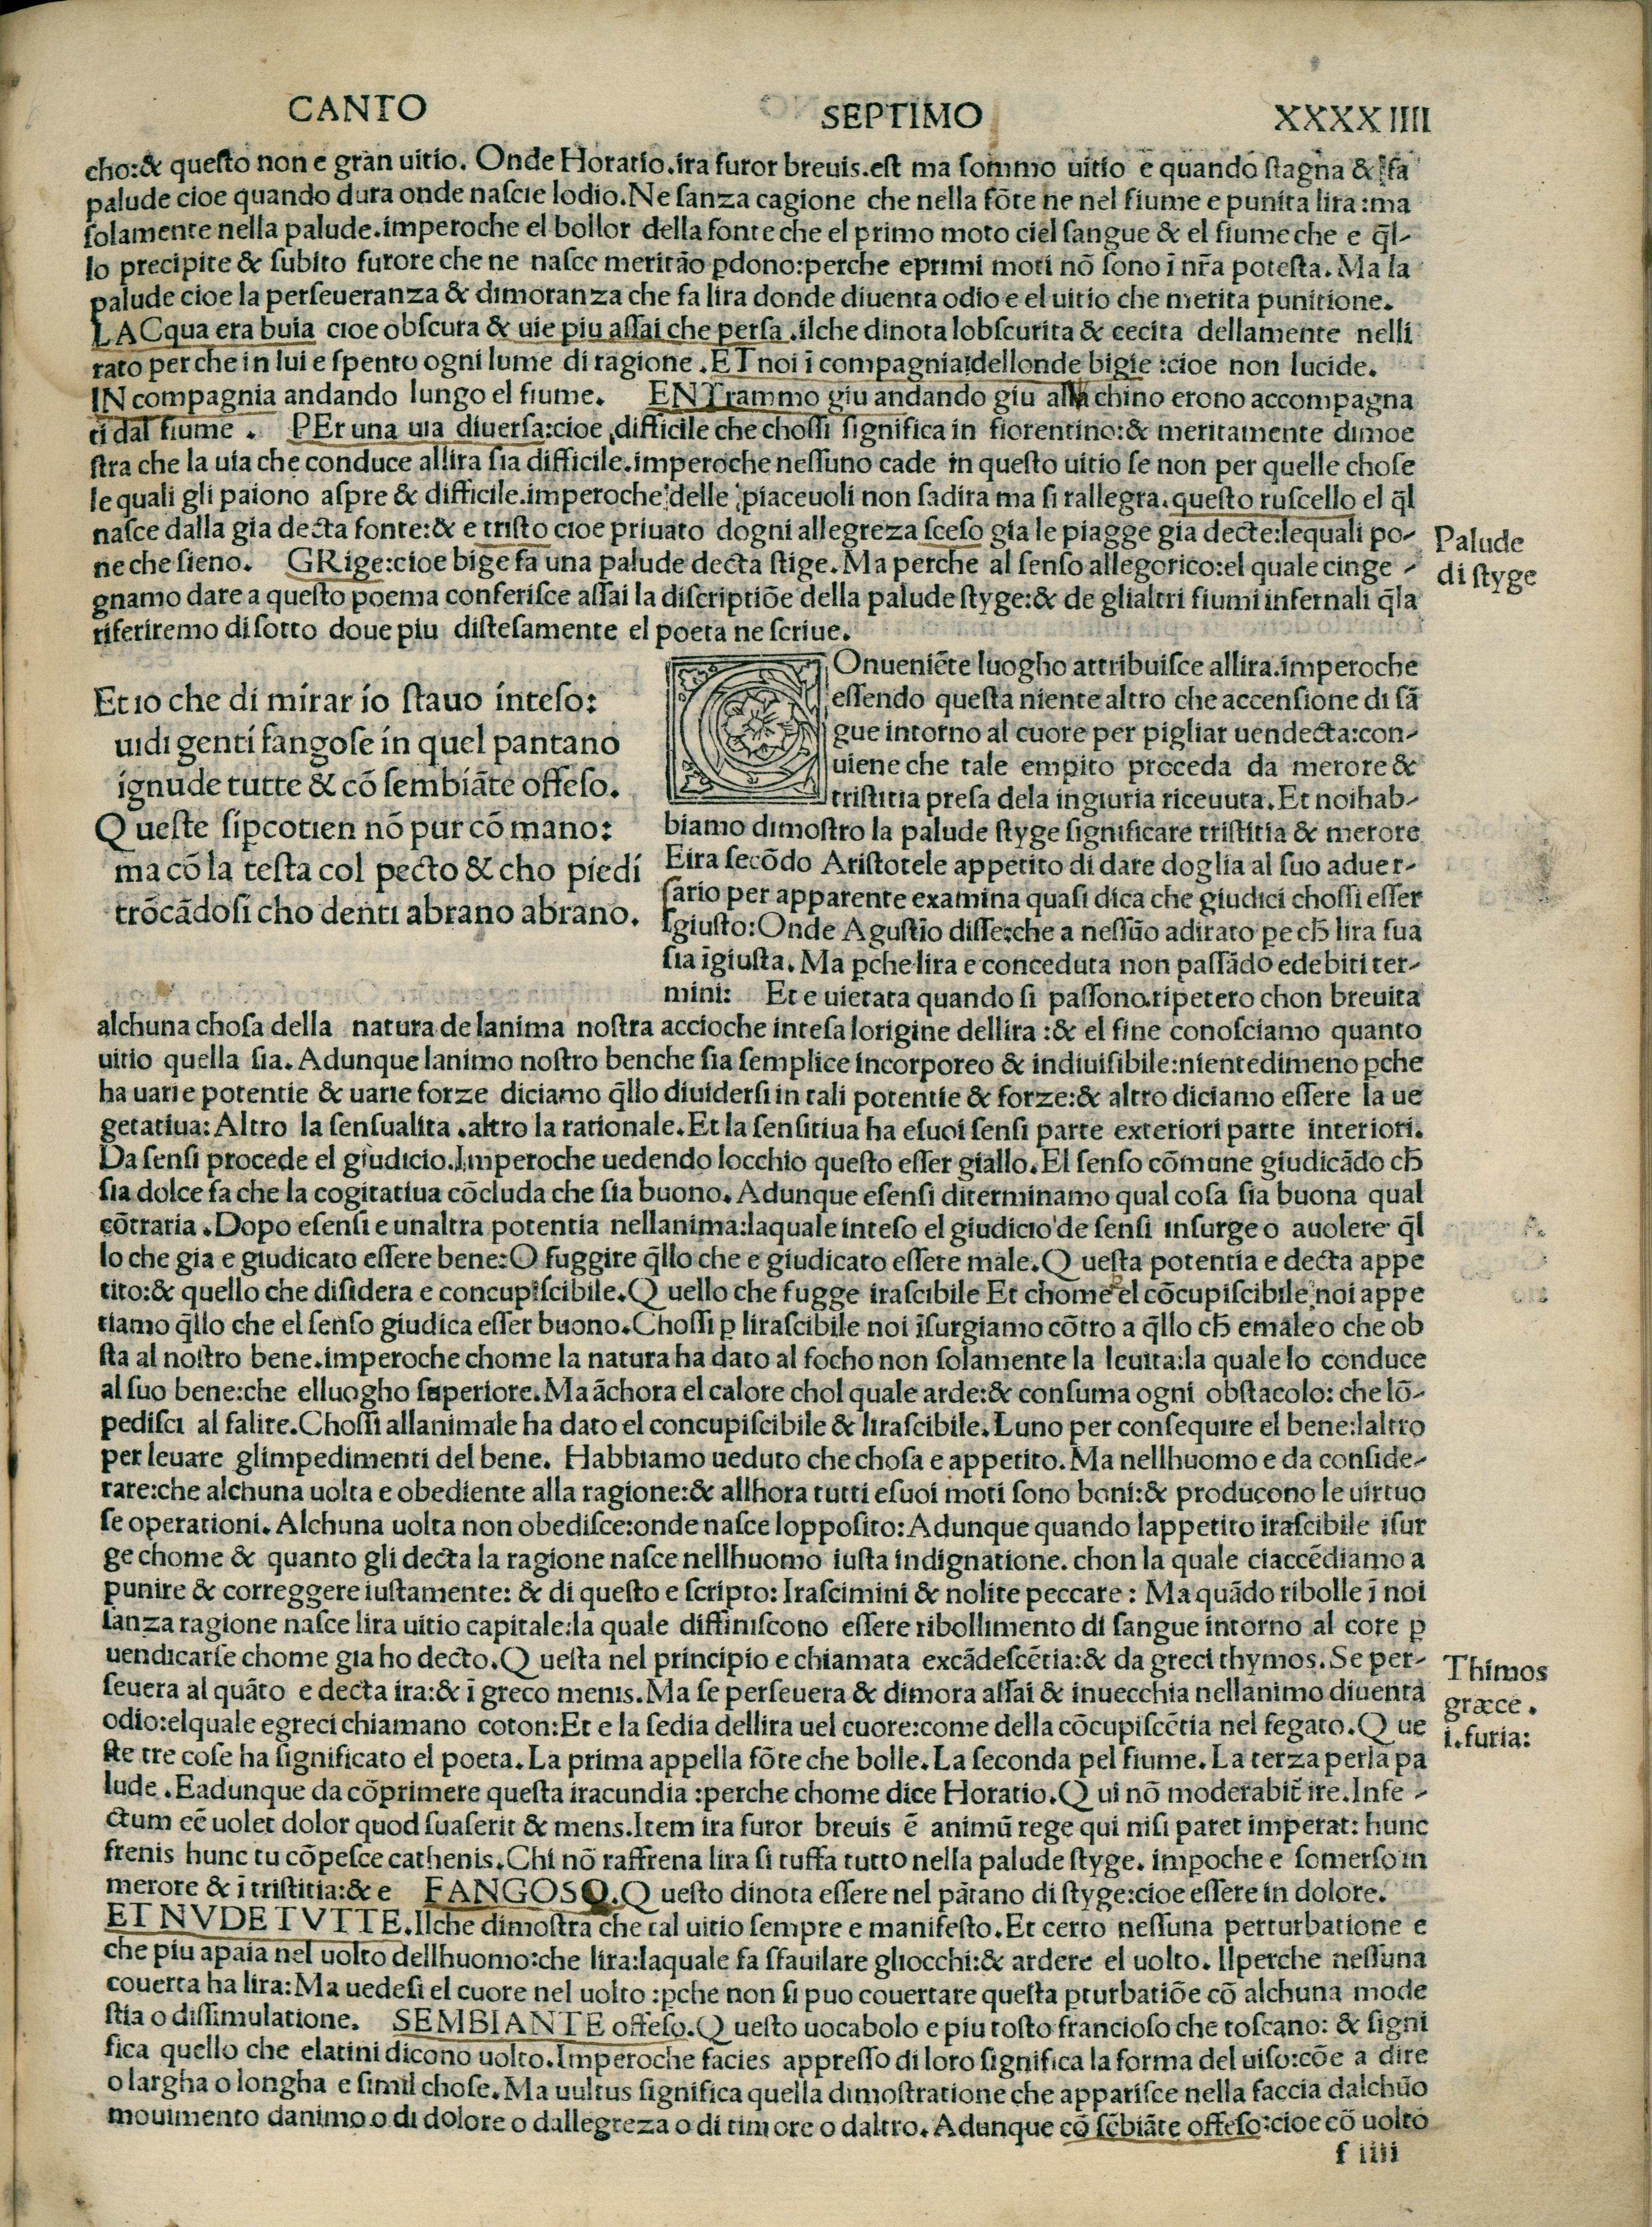 CANTO SEPTIMO XXXXIIII
cho:& questo non e gran uitio. Onde Horatio.ira furor breuis.est ma sommo uitio e quando stagna & fa
palude cioe quando dura onde nascie lodio.Ne sanza cagione che nella fōte ne nel fiume e punita lira:ma
solamente nella palude.imperoche el bollor della fonte che el primo moto ciel sangue & el fiume che e q̄l-
lo precipite & subito furore che ne nasce meritāo ꝑdono:perche eprimi moti nō sono ī nr̄a potesta. Ma la
palude cioe la perseueranza & dimoranza che fa lira donde diuenta odio e el uitio che merita punitione.
LACqua era buia cioe obscura & uie piu assai che persa.ilche dinota lobscurita & cecita dellamente nelli
rato per che in lui e spento ogni lume di ragione.ET noi ī compagnia dellonde bigie:cioe non lucide.
IN compagnia andando lungo el fiume. ENTrammo giu andando giu alla chino erono accompagna
ti dal fiume. PEr una uia diuersa:cioe difficile che chossi significa in fiorentino:& meritamente dimoe
stra che la uia che conduce allira sia difficile.imperoche nessuno cade in questo uitio se non per quelle chose
le quali gli paiono aspre & difficile.imperoche delle piaceuoli non sadira ma si rallegra.questo ruscello el q̄l
nasce dalla gia decta fonte:& e tristo cioe priuato dogni allegreza sceso gia le piagge gia decte:lequali po-
ne che sieno. GRige:cioe bige fa una palude decta stige. Ma perche al senso allegorico:el quale cinge-
gnamo dare a questo poema conferisce assai la discriptiōe della palude styge:& de glialtri fiumi infernali q̄la
riferiremo di sotto doue piu distesamente el poeta ne scriue.
Palude
di styge
Et io che di mirar io stauo inteso:
uidi genti fangose in quel pantano
ignude tutte & cō sembiāte offeso.
Queste siꝑcotien nō pur cō mano:
ma cō la testa col pecto & cho piedi
trōcādosi cho denti abrano abrano.
COnueniēte luogho attribuisce allira.imperoche
essendo questa niente altro che accensione di sā
gue intorno al cuore per pigliar uendecta:con-
uiene che tale empito proceda da merore &
tristitia presa dela ingiuria riceuuta. Et noi hab-
biamo dimostro la palude styge significare tristitia & merore
Eira secōdo Aristotele appetito di dare doglia al suo aduer-
sario per apparente examina quasi dica che giudici chossi esser
giusto:Onde Agustīo disse:che a nessūo adirato pe ch̄ lira sua
sia īgiusta. Ma ꝑche lira e conceduta non passādo edebiti ter-
mini: Et e uietata quando si passono.ripetero chon breuita
alchuna chosa della natura de lanima nostra accioche intesa lorigine dellira:& el fine conosciamo quanto
uitio quella sia. Adunque lanimo nostro benche sia semplice incorporeo & indiuisibile:nientedimeno ꝑche
ha uarie potentie & uarie forze diciamo q̄llo diuidersi in tali potentie & forze:& altro diciamo essere la ue
getatiua: Altro la sensualita.altro la rationale. Et la sensitiua ha esuoi sensi parte exteriori parte interiori.
Da sensi procede el giudicio.Imperoche uedendo locchio questo esser giallo.El senso cōmune giudicādo ch̄
sia dolce fa che la cogitatiua cōcluda che sia buono. Adunque esensi diterminamo qual cosa sia buona qual
cōtraria. Dopo esensi e unaltra potentia nellanima:laquale inteso el giudicio de sensi insurge o auolere q̄l
lo che gia e giudicato essere bene:O fuggire q̄llo che e giudicato essere male.Questa potentia e decta appe
tito:& quello che disidera e concupiscibile.Quello che fugge irascibile Et chome el cōcupiscibile noi appe
tiamo q̄llo che el senso giudica esser buono.Chossi ꝑ lirascibile noi īsurgiamo cōtro a q̄llo ch̄ emale o che ob
sta al nostro bene.imperoche chome la natura ha dato al focho non solamente la leuita:la quale lo conduce
al suo bene:che elluogho superiore. Ma āchora el calore chol quale arde:& consuma ogni obstacolo: che lō-
pedisci al salire.Chossi allanimale ha dato el concupiscibile & lirascibile.Luno per consequire el bene:laltro
per leuare glimpedimenti del bene. Habbiamo ueduto che chosa e appetito. Ma nellhuomo e da conside-
rare:che alchuna uolta e obediente alla ragione:& allhora tutti esuoi moti sono boni:& producono le uirtuo
se operationi. Alchuna uolta non obedisce:onde nasce lopposito: Adunque quando lappetito irascibile isur
ge chome & quanto gli decta la ragione nasce nellhuomo iusta indignatione. chon la quale ciaccēdiamo a
punire & correggere iustamente: & di questo e scripto: Irascimini & nolite peccare: Ma quādo ribolle ī noi
sanza ragione nasce lira uitio capitale:la quale diffiniscono essere ribollimento di sangue intorno al core ꝑ
uendicarse chome gia ho decto.Questa nel principio e chiamata excādescētia:& da greci thymos. Se per-
seuera al quāto e decta ira:& ī greco menis. Ma se perseuera & dimora assai & inuecchia nellanimo diuenta
odio:elquale egreci chiamano coton:Et e la sedia dellira uel cuore:come della cōcupiscētia nel fegato.Que
ste tre cose ha significato el poeta. La prima appella fōte che bolle. La seconda pel fiume. La terza perla pa
lude. Eadunque da cōprimere questa iracundia:perche chome dice Horatio.Qui nō moderabit̄ ire.Infe-
ctum eē uolet dolor quod suaserit & mens.Item ira furor breuis ē animū rege qui nisi paret imperat: hunc
frenis hunc tu cōpesce cathenis.Chi nō raffrena lira si tuffa tutto nella palude styge. imꝑoche e somerso in
merore & ī tristitia:& e FANGOSO.Questo dinota essere nel pātano di styge:cioe essere in dolore.
ET NVDE TVTTE.Ilche dimostra che tal uitio sempre e manifesto. Et certo nessuna perturbatione e
che piu apaia nel uolto dellhuomo:che lira:laquale fa sfauilare gliocchi:& ardere el uolto. Ilperche nessuna
couerta ha lira: Ma uedesi el cuore nel uolto:ꝑche non si puo couertare questa ꝑturbatiōe cō alchuna mode
stia o dissimulatione. SEMBIANTE offeso.Questo uocabolo e piu tosto francioso che toscano: & signi
fica quello che elatini dicono uolto.Imperoche facies appresso di loro significa la forma del uiso:cōe a dire
o largha o longha e simil chose. Ma uultus significa quella dimostratione che apparisce nella faccia dalchūo
mouimento danimo o di dolore o dallegreza o di timore o daltro. Adunque cō sēbiāte offeso:cioe cō uolto
Thimos
græce.
i.furia:
f iiii